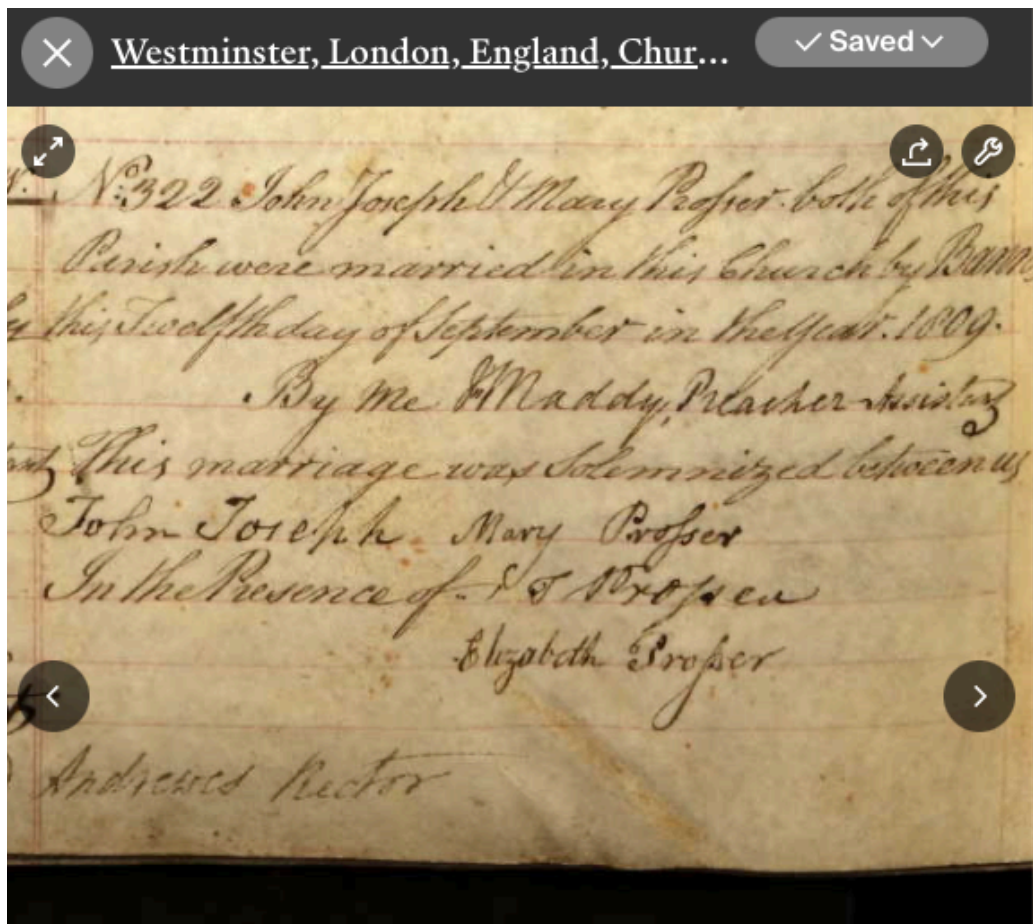 Westminster, London, England, Chur...
Saved
No. 322 John Joseph & Mary Prosser both of this
Parish were married in this Church by Bann
this Twelfth day of September in the Year 1809.
By me Maddy, Preacher Assistant
This marriage was Solemnized between us
John Joseph Mary Prosser
In the Presence of T Prosser
Elizabeth Prosser
Andrewes Rector